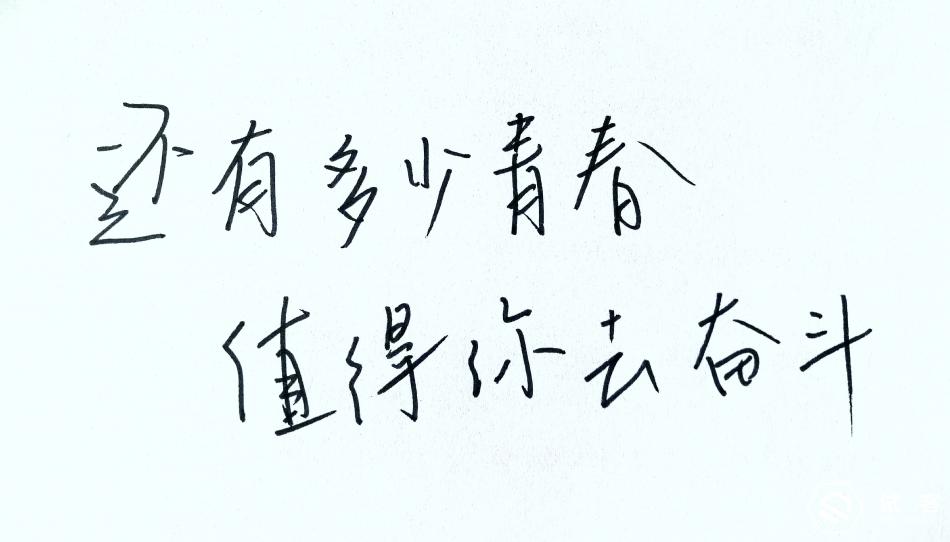 还有多少青春
值得你去奋斗